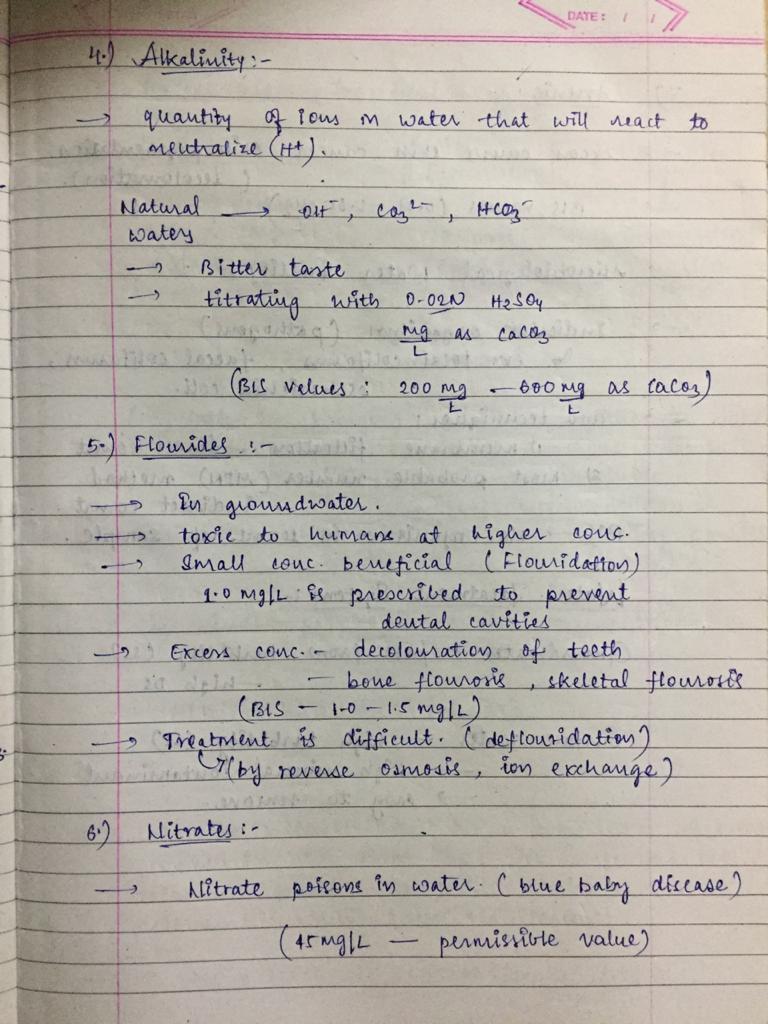 DATE: / /
4.) Alkalinity :-
→ quantity of ions in water that will react to
neutralize (H+).
Natural → OH⁻, CO₃²⁻, HCO₃⁻
waters
→ Bitter taste
→ titrating with 0.02N H₂SO₄
mg/L as CaCO₃
(BIS values : 200 mg/L - 600 mg/L as CaCO₃)
5.) Flourides :-
→ In groundwater.
→ toxic to humans at higher conc.
→ Small conc. beneficial (Flouridation)
1.0 mg/L is prescribed to prevent
dental cavities
→ Excess conc. - decolouration of teeth
- bone flourosis, skeletal flourosis
(BIS - 1.0 - 1.5 mg/L)
→ Treatment is difficult. (deflouridation)
↳ (by reverse osmosis, ion exchange)
6.) Nitrates :-
→ Nitrate poisons in water. (blue baby disease)
(45 mg/L - permissible value)